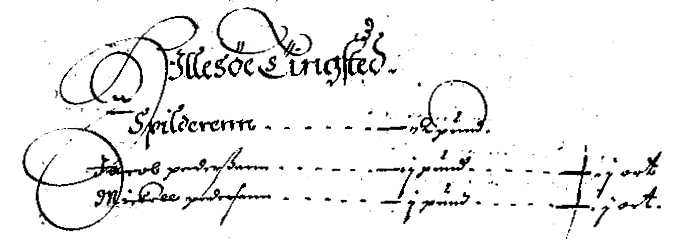 Illesöe Tingsted.
Spilderenn - - - - - pund.
Jacob pederßenn - - - - - j pund - - - - j ort
Mickell pedersenn - - - - - j pund - - - - j ort.